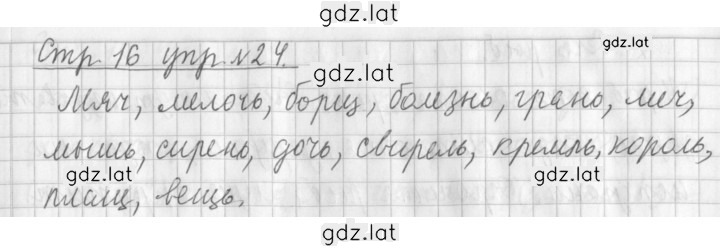 gdz.lat
Стр 16 упр №24.
gdz.lat
gdz.lat
Мяч, мелочь, борщ, болезнь, грань, меч,
мышь, сирень, дочь, свирель, кремль, король,
gdz.lat
gdz.lat
плащ, вещь.
gdz.lat